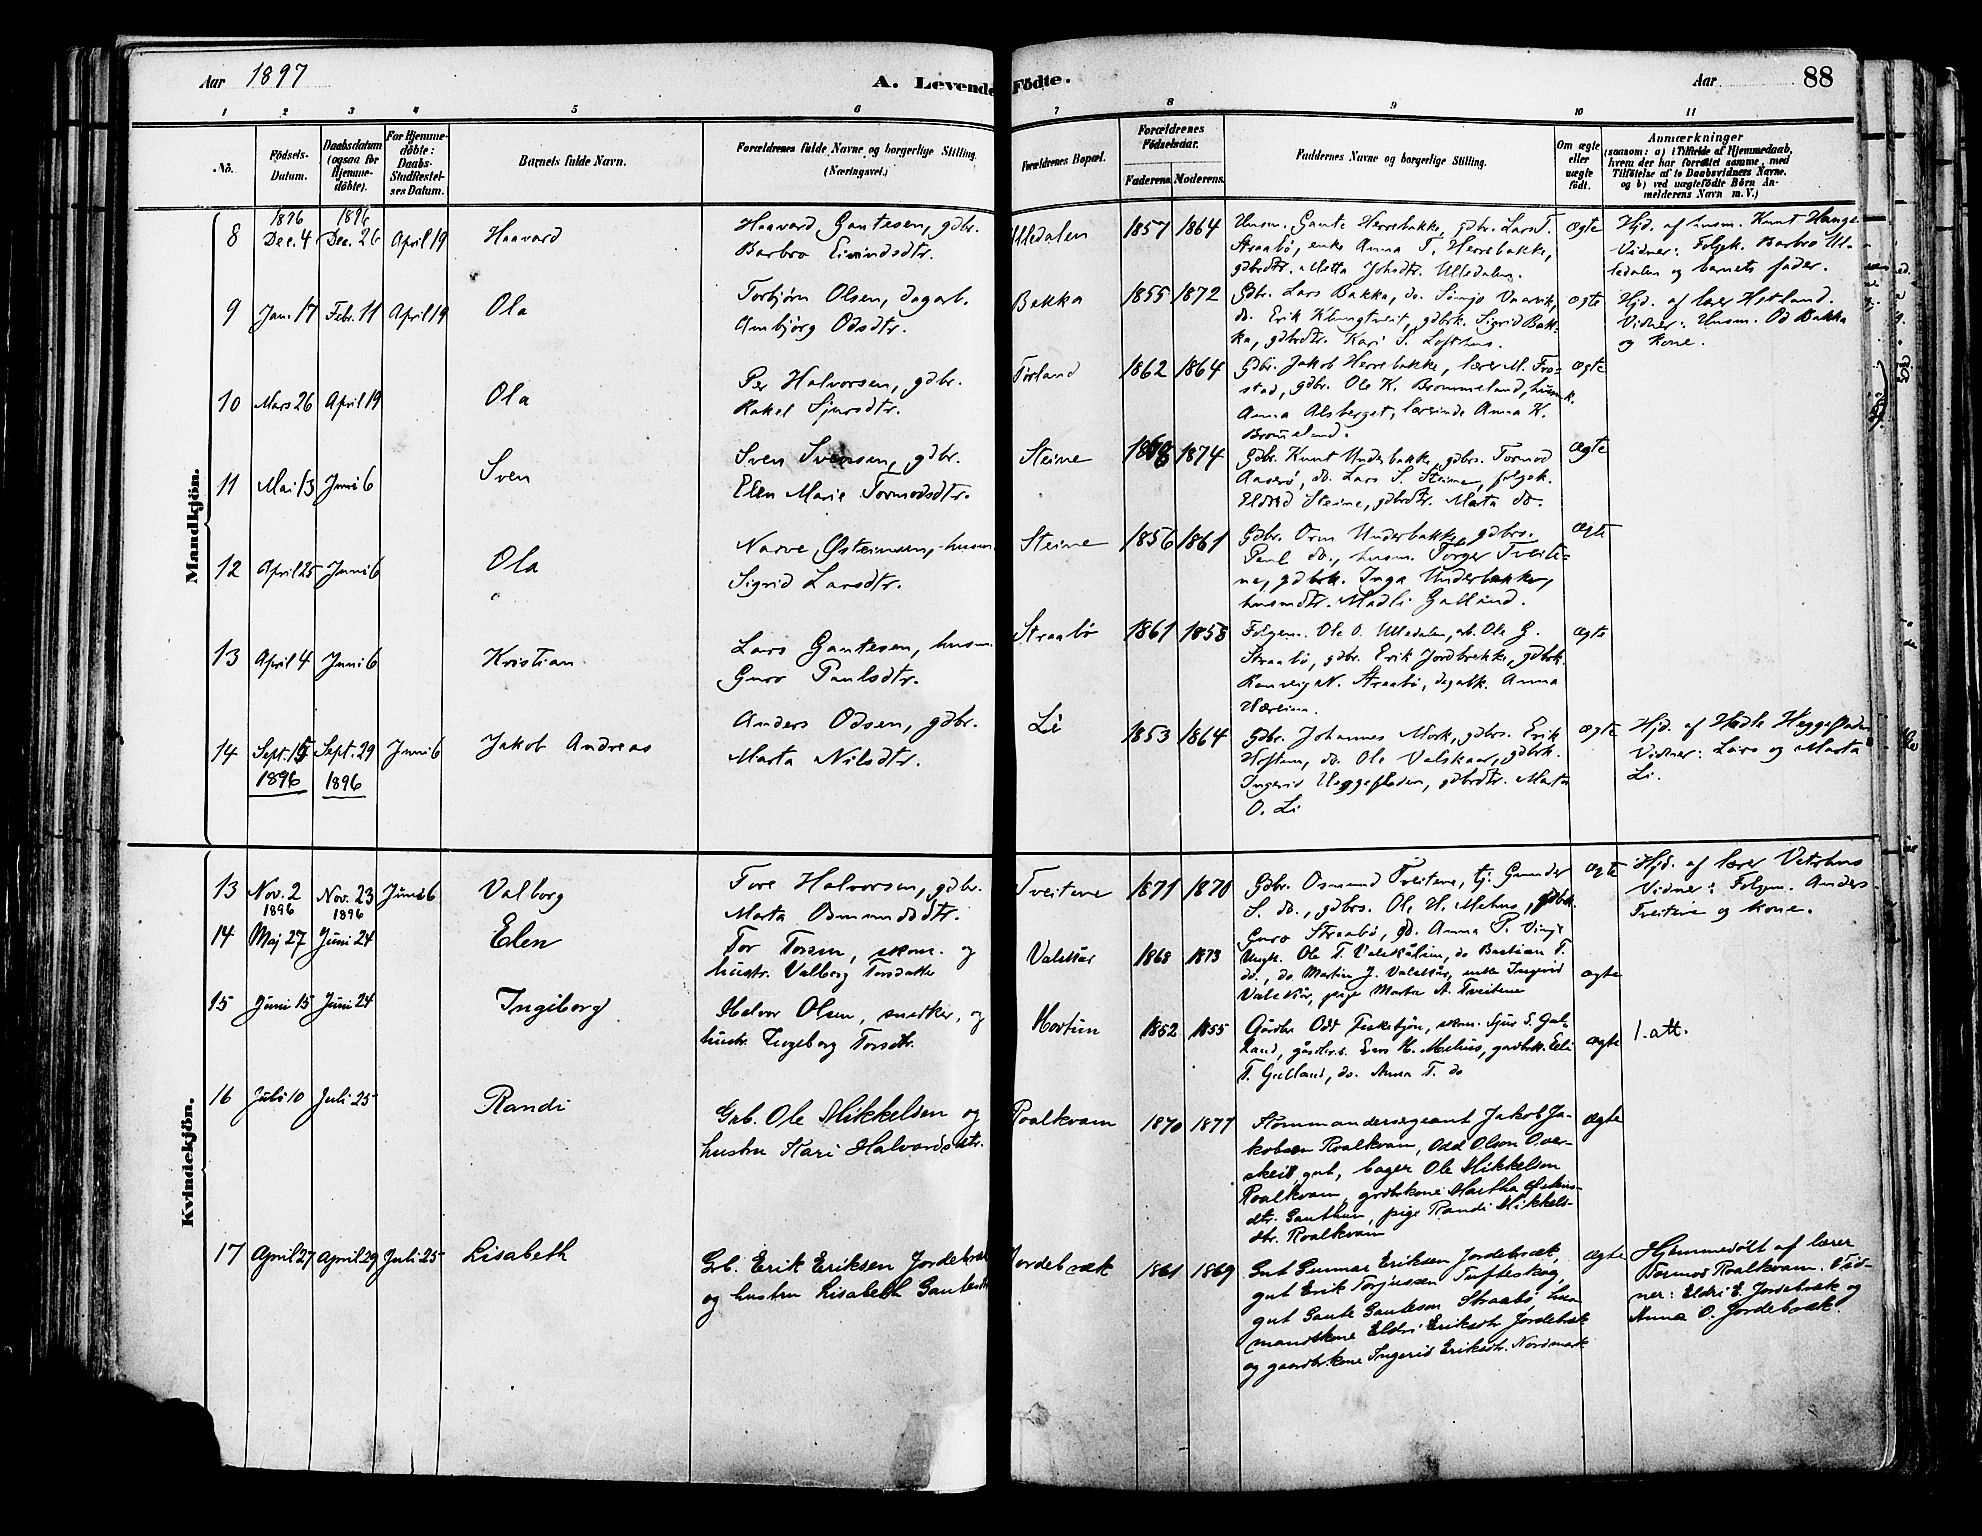 Aar 1897
A. Levende Fødte.
Aar 88
1 2 3 4 5 6 7 8 9 10 11
No.
Fødsels-Datum.
Daabsdatum (ogsaa for Hjemme-døbte).
For Hjemme-døbte: Daabs-Stadfæstel-ses Datum.
Barnets fulde Navn.
Forældrenes fulde Navne og borgerlige Stilling. (Næringsvei.)
Forældrenes Bopæl.
Forældrenes Fødselsaar.
Faderens. Moderens.
Faddernes Navne og borgerlige Stilling.
Om ægte eller uægte født.
Anmærkninger
(saasom: a) i Tilfælde af Hjemmedaab,
hvem der har forrettet samme, med
Tilføielse af to Daabsvidners Navne.
og b) ved uægtefødte Børn An-
melderens Navn m. V.)
Mandkjön.
8 1896 Dec. 4 1896 Dec. 26 April 19 Haavard
Haavard Gautesen, gdbr.
Barbro Eivindsdtr.
Ulledalen 1857 1864
Husm. Gaute Herrebakke, gdbr. Lars T.
Straabø, enke Anna T. Herrebakke,
gdbrdtr. Metta Johsdtr. Ulledalen.
Ægte
Hjd. af husm. Knut Hauge
Vidner: Folgek. Barbro Ul-
ledalen og barnets fader.
9 Jan. 17 Febr. 11 April 19 Ola
Torbjørn Olsen, dagarb.
Ambjørg Odsdtr.
Bakka 1855 1872
Gdbr. Lars Bakka, do. Vaarvik,
do. Erik Klungtveit, gdbrk. Sigrid Bak-
ka, gdbrdtr. Kari S. Lofthus.
Ægte
Hjd. af lærer Hetland.
Vidner: Husm. Od Bakka
og kone.
10 Mars 26 April 19 Ola
Per Halvorsen, gdbr.
Rakel Sjursdtr.
Førland 1862 1864
Gdbr. Jakob Herrebakke, lærer M. Fro-
stad, gdbr. Ole K. Brommeland, husmk.
Anna Alsberget, lærerinde Anna K.
Brommeland.
Ægte
11 Mai 13 Juni 6 Sven
Sven Svensen, gdbr.
Elen Marie Tormodsdtr.
Steine 1874
Gdbr. Knut Underbakke, gdbrs. Tormod
Aaserø, do. Lars S. Steine, folgek.
Eldrid Steine, gdbrdtr. Marta do.
Ægte
12 April 25 Juni 6 Ola
Narve Østeinsen, husm.
Sigrid Larsdtr.
Steine 1856 1861
Gdbr. Orm Underbakke, gdbrs.
Paul do., husm. Torger Tveite-
ne, gdbrk. Inga Underbakke,
husmdtr. Madli Galland.
Ægte
13 April 4 Juni 6 Kristian
Lars Gautesen, husm.
Guro Paulsdtr.
Straabø 1861 1858
Folgem. Ole O. Ulledalen, ab. Ole G.
Straabø, gdbr. Erik Jordbrekke, gdbrk.
Ranveig N. Straabø, dagabk. Anna
Ægte
14 Sept. 15 1896 Sept. 29 1896 Juni 6 Jakob Andreas
Anders Odsen, gdbr.
Marta Nilsdtr.
Li 1853 1864
Gdbr. Johannes Mork, gdbrs. Erik
Hoftun, do. Ole Valskaar, gdbrk.
Ingerid Heggefladen, gdbrdtr. Marta
O. Li
Ægte
Hjd. af Hadle Heggefladen
Vidner: Lars og Marta
Li.
Kvindekjön.
13 Nov. 2 1896 Nov. 23 1896 Juni 6 Valborg
Tore Halvorsen, gdbr.
Marta Osmundsdtr.
Tveitene 1871 1870
Gdbr. Osmund Tveitene, tj. Gunder
S. do., gdbrs. Ole H. Mehus, gdbrk.
Guro Straabø, gd. Anna P. Vinje
Ægte
Hjd. af lærer Vetrhus
Vidner: Folgm. Anders
Tveitene og kone.
14 Maj 27 Juni 24 Elen
Tor Torsen, skom. og
hustr. Valborg Torsdatter
Valskår 1868 1873
Ungk. Ole T. Valskår, do Bastian T.
do., do Martin J. Valskår, enke Ingerid
Valskår, pige Marta A. Tveitene
Ægte
15 Juni 15 Juni 24 Ingiborg
Helvor Olsen, snedker, og
hustr. Ingeborg Torsdtr.
Hoftun 1852 1855
Gårdbr. Odt Fiskekjøn, skom. Sjur S. Gul-
land, gårdbr.s. Enos H. Mehus, gardbrk. Eli
T. Gulland, do. Anna T. do
Ægte
1. att.
16 Juli 10 Juli 25 Randi
Grb. Ole Mikkelsen og
hustru Kari Halvardsdtr.
Roalkvam 1870 1877
Kommandersergeant Jakob Ja-
kobsen Roalkvam, Odd Olson Over-
skeit, gut, bager Ole Mikkelsen
Roalkvam, grdbrkone Martha
dtr. Gauthun, pige Randi Mikkels-
dtr. Roalkvam
Ægte
17 April 27 April 29 Juli 25 Lisabeth
Grb. Erik Eriksen Jordebræk
og hustru Lisabeth Gautesdtr
Jordebræk 1861 1869
Gut Gunnar Eriksen Jordebræk,
gut Erik Torjussen Tufteskog,
gut Gaute Gautesen Straabø, Lisa-
mandskone Eldri Eriksdtr. Jordebræk
og gaardbrkone Ingerid Eriksdtr. Nordmark
Ægte
Hjemmedøbt af lærer
Tormod Roalkvam. Vid-
ner: Eldri E. Jordebræk og
Anna O. Jordebræk.